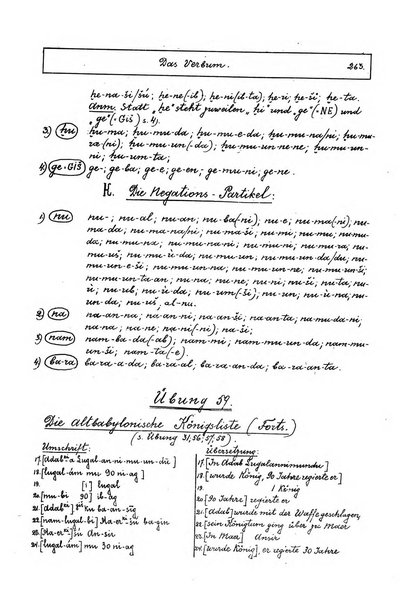 Das Verbum. 263.
ḫe-na-ši/šú; ḫe-ne(-ib); ḫe-ni(ib-ta); ḫe-ri; ḫe-ši; ḫe-ta.
Anm. Statt „ḫe" steht zuweilen „ḫi" und „ge"(·NE) und
„ge"(·Giš) s. 4).
3) ḫu ḫu-ma; ḫu-mu-da; ḫu-mu-e-da; ḫu-mu-na/ni; ḫu-mu-
ra(-ni); ḫu-mu-un(-da); ḫu-mu-un-ne-ne; ḫu-mu-un-
ni; ḫu-um-ta;
4) ge·Giš ge-; ge-ba; ge-e; ge-en; ge-mu-ni; ge-ne.
H. Die Negations-Partikel:
1) nu nu-; nu-al; nu-an; nu-ba(-ni); nu-e; nu-ma(-ni); nu-
ma-da; nu-ma-na/ni; nu-ma-ši; nu-mi; nu-mu; nu-mu-
da; nu-mu-na; nu-mu-na-ni; nu-mu-ni; nu-mu-ra; nu-
mu-uš; nu-mu-ù-da; nu-mu-un; nu-mu-un-da/du; nu-
mu-un-e-ši; nu-mu-un-na; nu-mu-un-ne; nu-mu-un-ši;
nu-mu-un-ta-an; nu-na; nu-ne; nu-ni; nu-ši; nu-ta; nu-
ù; nu-ub; nu-ù-da; nu-um(-ši); nu-un; nu-ù-na; nu-
un-da; nu-uš al-na.
2) na na-an-na; na-an-ni; na-an-ši; na-an-ta; na-mu-da-ni;
na-na; na-ne; na-ni(-ni); na-ši;
3) nam nam-ba-da(-ab); nam-mi; nam-mu-un-da; nam-mu-
un-ši; nam-ta(-e).
4) ba-ra ba-ra-a-da; ba-ra-al; ba-ra-an-da; ba-ra-an-ta.
Übung 59.
Die altbabylonische Königsliste (Forts.)
(s. Übung 31, 56, 57, 58).
Umschrift:
17. [Adab ki-a Lugal-an-ni-mu-un-dù]
18. [lugal-ám mu 90 ni-ag]
19. [1] lugal
20. [mu-bi 90] ib-ag
21. [Adab ki] ku ba-an-sig
22. [nam-lugal-bi] Ma-er ki šú ba-gin
23. [Ma-er ki] šú An-sir
24. [lugal-ám] mu 30 ni-ag
Übersetzung:
17. [In Adab Lugalannimundu]
18. [wurde König, 90 Jahre regierte er]
19. 1 König
20. [90 Jahre] regierte er
21. [Adab] wurde mit der Waffe geschlagen,
22. [sein Königtum ging über zu Maer
23. [in Maer] Ansir
24. [wurde König], er regierte 30 Jahre